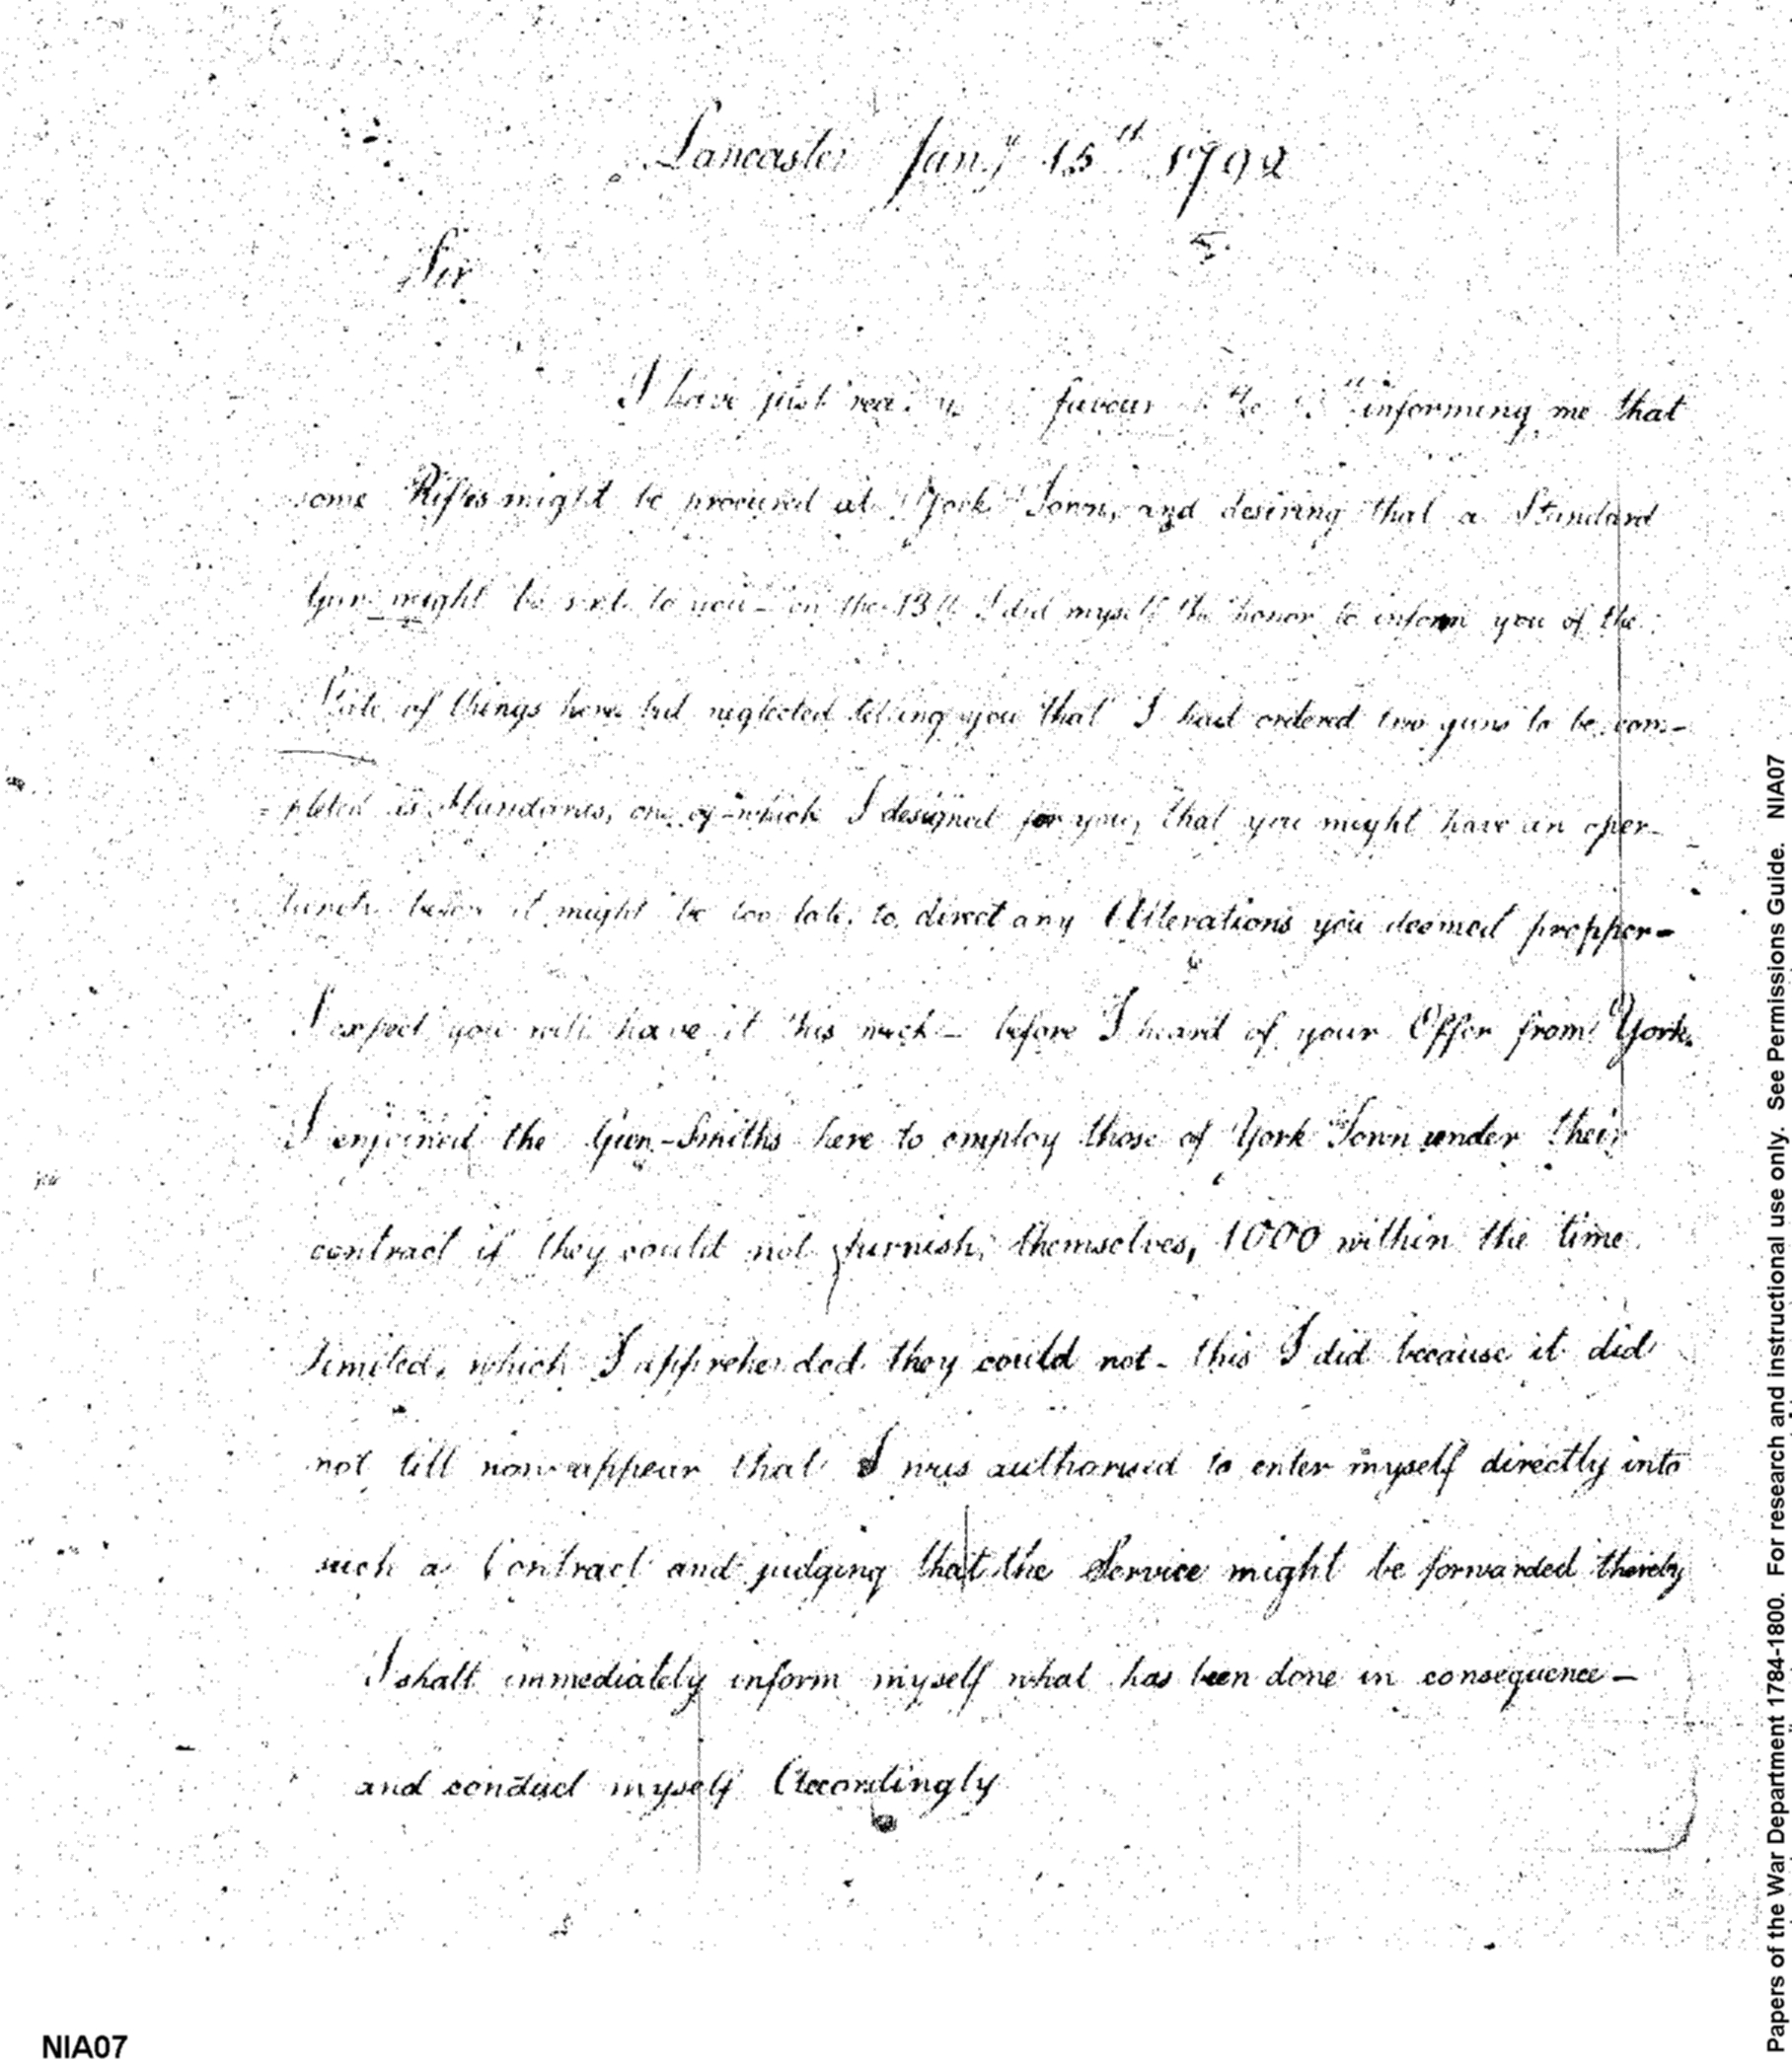 Lancaster Jany 15th 1792
Sir
I have just recd favour informing me that
some Rifles might be procured at York Town, and desiring that a Standard
Gun might be sent to you - on the 13th I did myself the honor to inform you of the
State of things here but neglected telling you that I had ordered two guns to be com-
-pleted as Standards, one of which I designed for you, that you might have an oper-
tunity before it might be too late, to direct any Alterations you deemed propper-
I expect you will have it this week - before I heard of your Offer from York.
I enjoined the Gun-Smiths here to employ those of York Town under their
contract if they could not furnish, themselves, 1000 within the time
limited, which I apprehended they could not - this I did because it did
not till now appear that I was authorised to enter myself directly into
such a Contract and judging that the Service might be forwarded thereby
I shall immediately inform myself what has been done in consequence -
and conduct myself Accordingly
NIA07
Papers of the War Department 1784-1800. For research and instructional use only. See Permissions Guide. NIA07